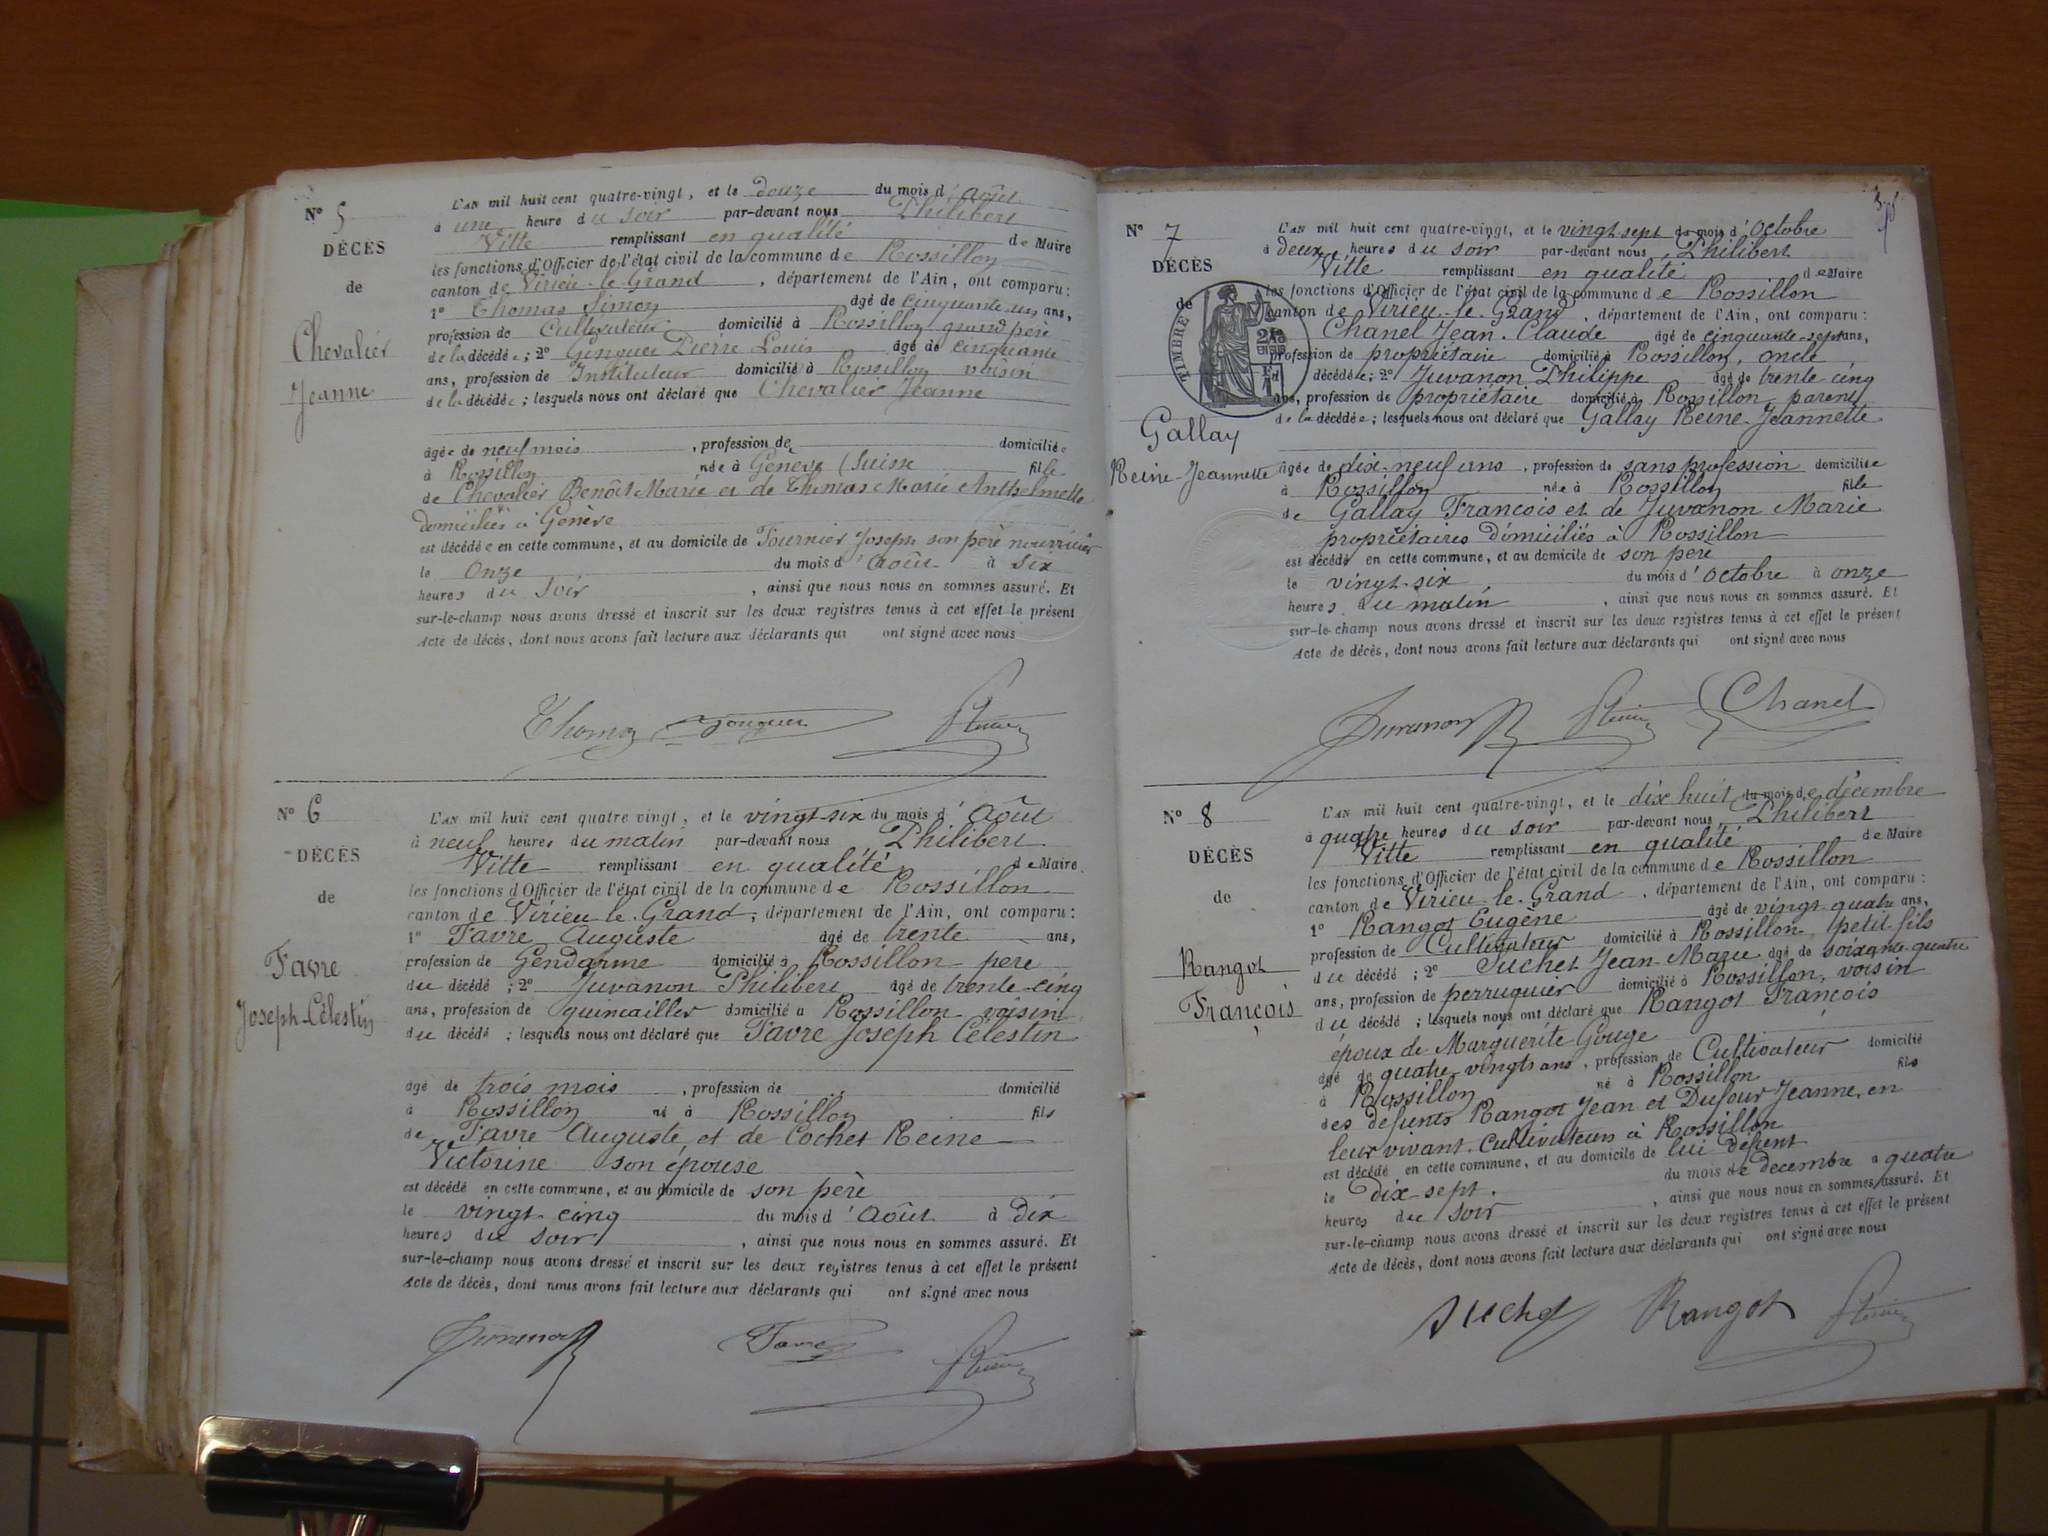 N° 5
DÉCÈS
de
Chevalier
Jeanne
L'AN mil huit cent quatre-vingt, et le douze du mois d'août
à une heure du soir par-devant nous Philibert
Vitte remplissant en qualité de Maire
les fonctions d'Officier de l'état civil de la commune de Rossillon
canton de Virieu-le-Grand, département de l'Ain, ont comparu:
1° Thomas Simon âgé de cinquante-un ans,
profession de Cultivateur domicilié à Rossillon grand père
de la décédée; 2° Gonguet Pierre Louis âgé de cinquante
ans, profession de Instituteur domicilié à Rossillon voisin
de la décédée; lesquels nous ont déclaré que Chevalier Jeanne
âgée de neuf mois, profession de domiciliée
à Rossillon née à Genève (Suisse fille
de Chevalier Benôit Marie et de Thomas Marie Anthelmette
domiciliés à Genève
est décédée en cette commune, et au domicile de Fournier Joseph son père nourricier
le onze du mois d'août à six
heures du soir, ainsi que nous nous en sommes assuré. Et
sur-le-champ nous avons dressé et inscrit sur les deux registres tenus à cet effet le présent
acte de décès, dont nous avons fait lecture aux déclarants qui ont signé avec nous
Thomas
N° 6
DÉCÈS
de
Favre
Joseph-Célestin
L'AN mil huit cent quatre vingt, et le vingt-six du mois d'Août
à neuf heures du matin par-devant nous Philibert
Vitte remplissant en qualité de Maire
les fonctions d'Officier de l'état civil de la commune de Rossillon
canton de Virieu-le-Grand; département de l'Ain, ont comparu:
1° Favre Auguste âgé de trente ans,
profession de Gendarme domicilié à Rossillon père
du décédé; 2° Juvanon Philibert âgé de trente-cinq
ans, profession de quincailler domicilié à Rossillon voisin
du décédé; lesquels nous ont déclaré que Favre Joseph Célestin
âgé de trois mois, profession de domicilié
à Rossillon né à Rossillon fils
de Favre Auguste et de Cochet Reine
Victorine son épouse
est décédé en cette commune, et au domicile de son père
le vingt-cinq du mois d'Août à dix
heures du soir, ainsi que nous nous en sommes assuré. Et
sur-le-champ nous avons dressé et inscrit sur les deux registres tenus à cet effet le présent
acte de décès, dont nous avons fait lecture aux déclarants qui ont signé avec nous
Juvanon Favre
N° 7
DÉCÈS
de
TIMBRE
Gallay
Reine-Jeannette
L'AN mil huit cent quatre-vingt, et le vingt sept du mois d'Octobre
à deux heures du soir par-devant nous Philibert
Vitte remplissant en qualité de Maire
les fonctions d'Officier de l'état civil de la commune de Rossillon
canton de Virieu-le-Grand, département de l'Ain, ont comparu:
Chanel Jean-Claude âgé de cinquante-sept ans,
profession de propriétaire domicilié à Rossillon, oncle
décédée; 2° Juvanon Philippe âgé de trente cinq
ans, profession de propriétaire domicilié à Rossillon parent
de la décédée; lesquels nous ont déclaré que Gallay Reine-Jeannette
âgée de dix-neuf ans, profession de sans profession domiciliée
à Rossillon née à Rossillon fille
de Gallay François et de Juvanon Marie
propriétaires domiciliés à Rossillon
est décédé en cette commune, et au domicile de son père
le vingt-six du mois d'octobre à onze
heures du matin, ainsi que nous nous en sommes assuré. Et
sur-le-champ nous avons dressé et inscrit sur les deux registres tenus à cet effet le présent
acte de décès, dont nous avons fait lecture aux déclarants qui ont signé avec nous
Juvanon Chanel
N° 8
DÉCÈS
de
Rangot
François
L'AN mil huit cent quatre-vingt, et le dix huit du mois de décembre
à quatre heures du soir par-devant nous Philibert
Vitte remplissant en qualité de Maire
les fonctions d'Officier de l'état civil de la commune de Rossillon
canton de Virieu-le-Grand, département de l'Ain, ont comparu:
1° Rangot Eugène âgé de vingt quatre ans,
profession de Cultivateur domicilié à Rossillon, petit fils
du décédé; 2° Suchet Jean-Marie âgé de soixante-quatre
ans, profession de perruquier domicilié à Rossillon, voisin
du décédé; lesquels nous ont déclaré que Rangot François
époux de Marguerite Gouge
âgé de quatre-vingts ans, profession de Cultivateur domicilié
à Rossillon né à Rossillon fils
des défunts Rangot Jean et Dufour Jeanne, en
leur vivant cultivateurs à Rossillon
est décédé en cette commune, et au domicile de lui défunt
le dix-sept du mois de décembre à quatre
heures du soir, ainsi que nous nous en sommes assuré. Et
sur-le-champ nous avons dressé et inscrit sur les deux registres tenus à cet effet le présent
acte de décès, dont nous avons fait lecture aux déclarants qui ont signé avec nous
Suchet Rangot